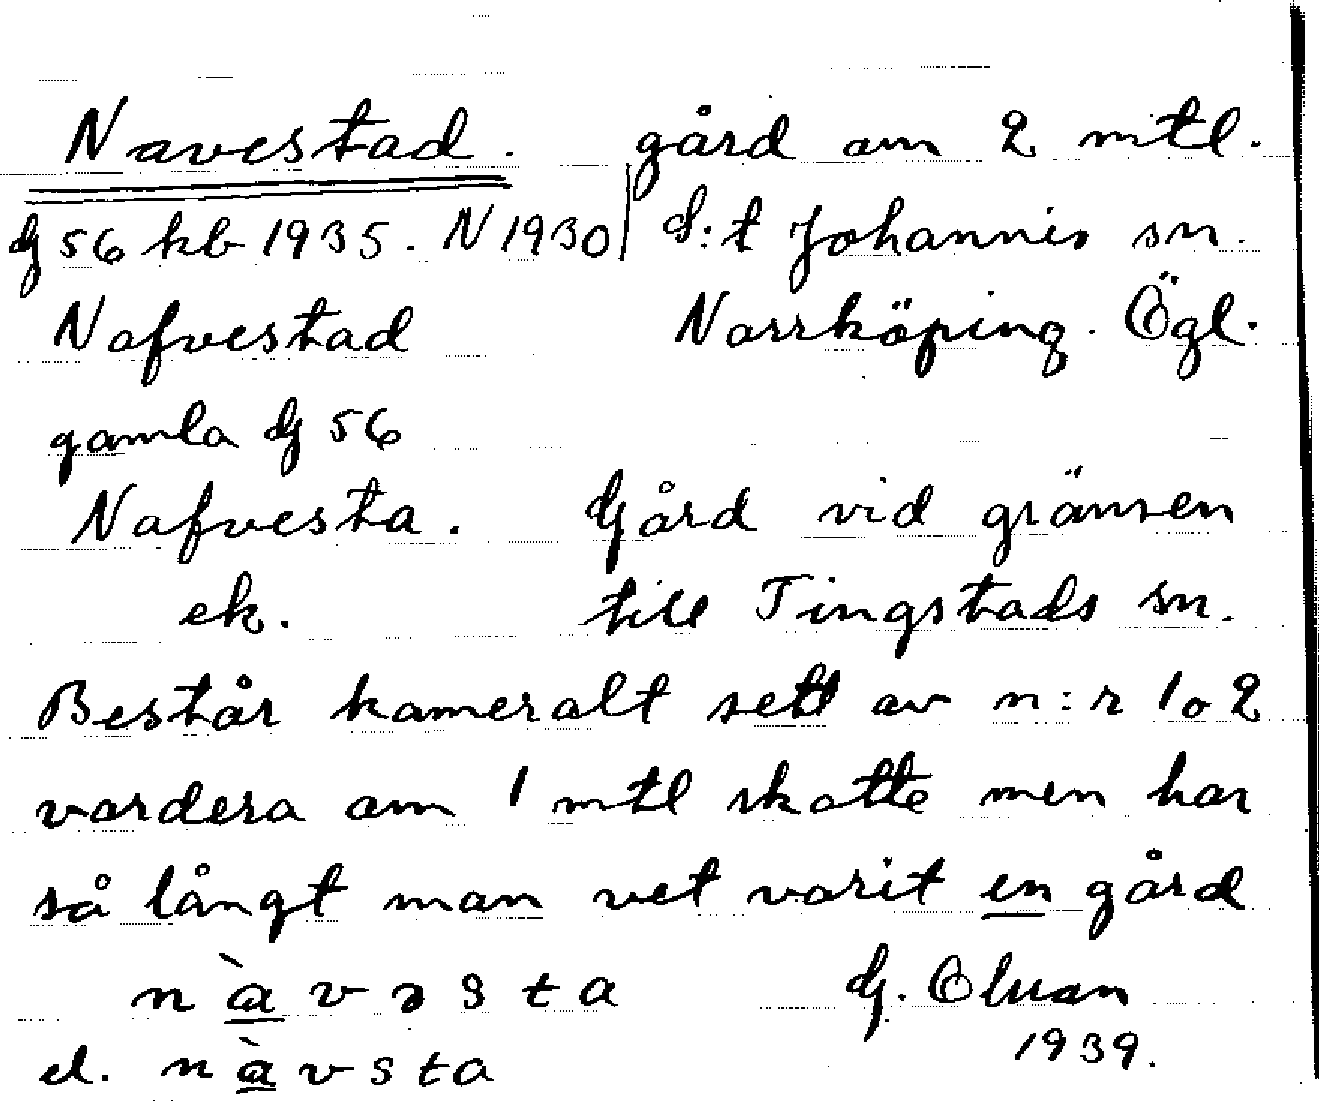 Navestad. gård om 2 mtl.
G 56 kb 1935. N 1930 S:t Johannis sn.
Nafvestad Norrköping. Ögl.
gamla G 56
Nafvesta. Gård vid gränsen
ek. till Tingstads sn.
Består kameralt sett av n:r 1 o 2
vardera om 1 mtl skatte men har
så långt man vet varit en gård
nàvəsta G.
el. nàvsta 1939.